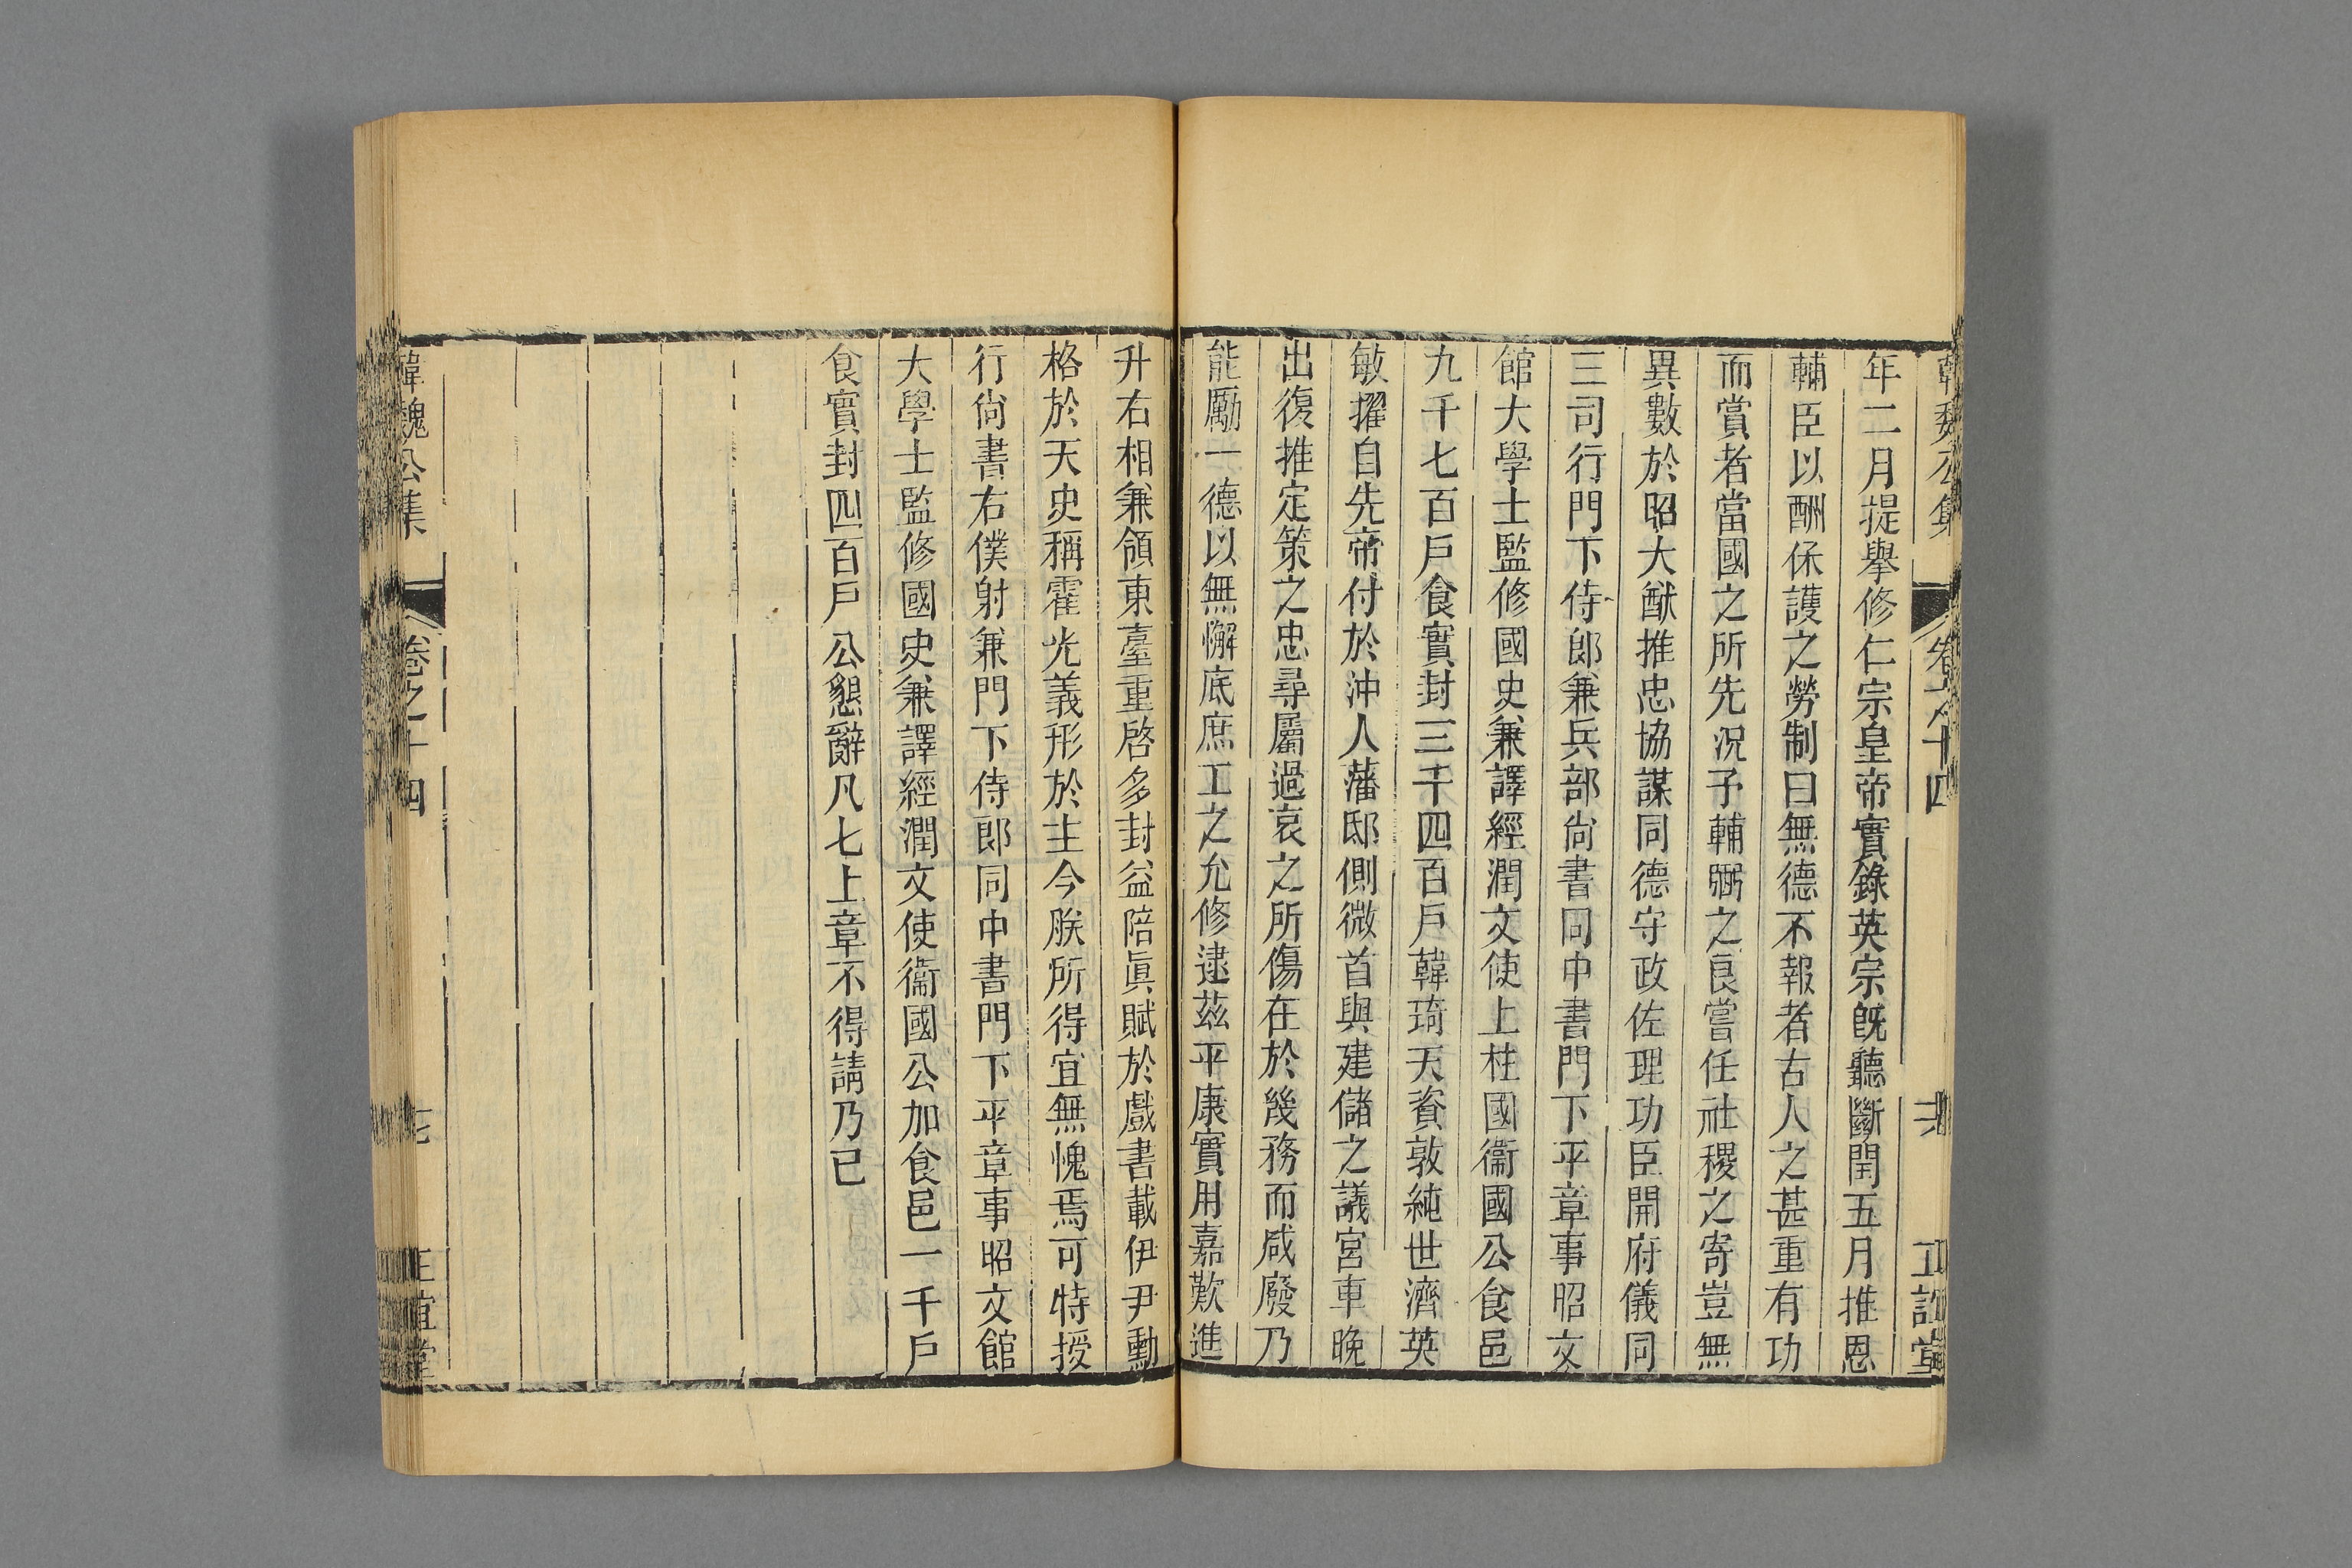 韓魏公集 卷之十四 正誼堂
年二月提舉修仁宗皇帝實錄英宗旣聽斷閏五月推恩
輔臣以酬保護之勞制曰無德不報者古人之甚重有功
而賞者當國之所先況予輔弼之良嘗任社稷之寄豈無
異數於昭大猷推忠協謀同德守政佐理功臣開府儀同
三司行門下侍郎兼兵部尙書同中書門下平章事昭文
館大學士監修國史兼譯經潤文使上柱國衞國公食邑
九千七百戶食實封三千四百戶韓琦天資敦純世濟英
敏擢自先帝付於沖人藩邸側微首與建儲之議宮車晚
出復推定策之忠尋屬過哀之所傷在於幾務而咸廢乃
能勵一德以無懈底庶工之允修逮茲平康實用嘉歎進
升右相兼領東臺重啓多封益陪眞賦於戲書載伊尹勳
格於天史稱霍光義形於主今朕所得宜無愧焉可特授
行尙書右僕射兼門下侍郎同中書門下平章事昭文館
大學士監修國史兼譯經潤文使衞國公加食邑一千戶
食實封四百戶公懇辭凡七上章不得請乃已
韓魏公集 卷之十四 七 正誼堂